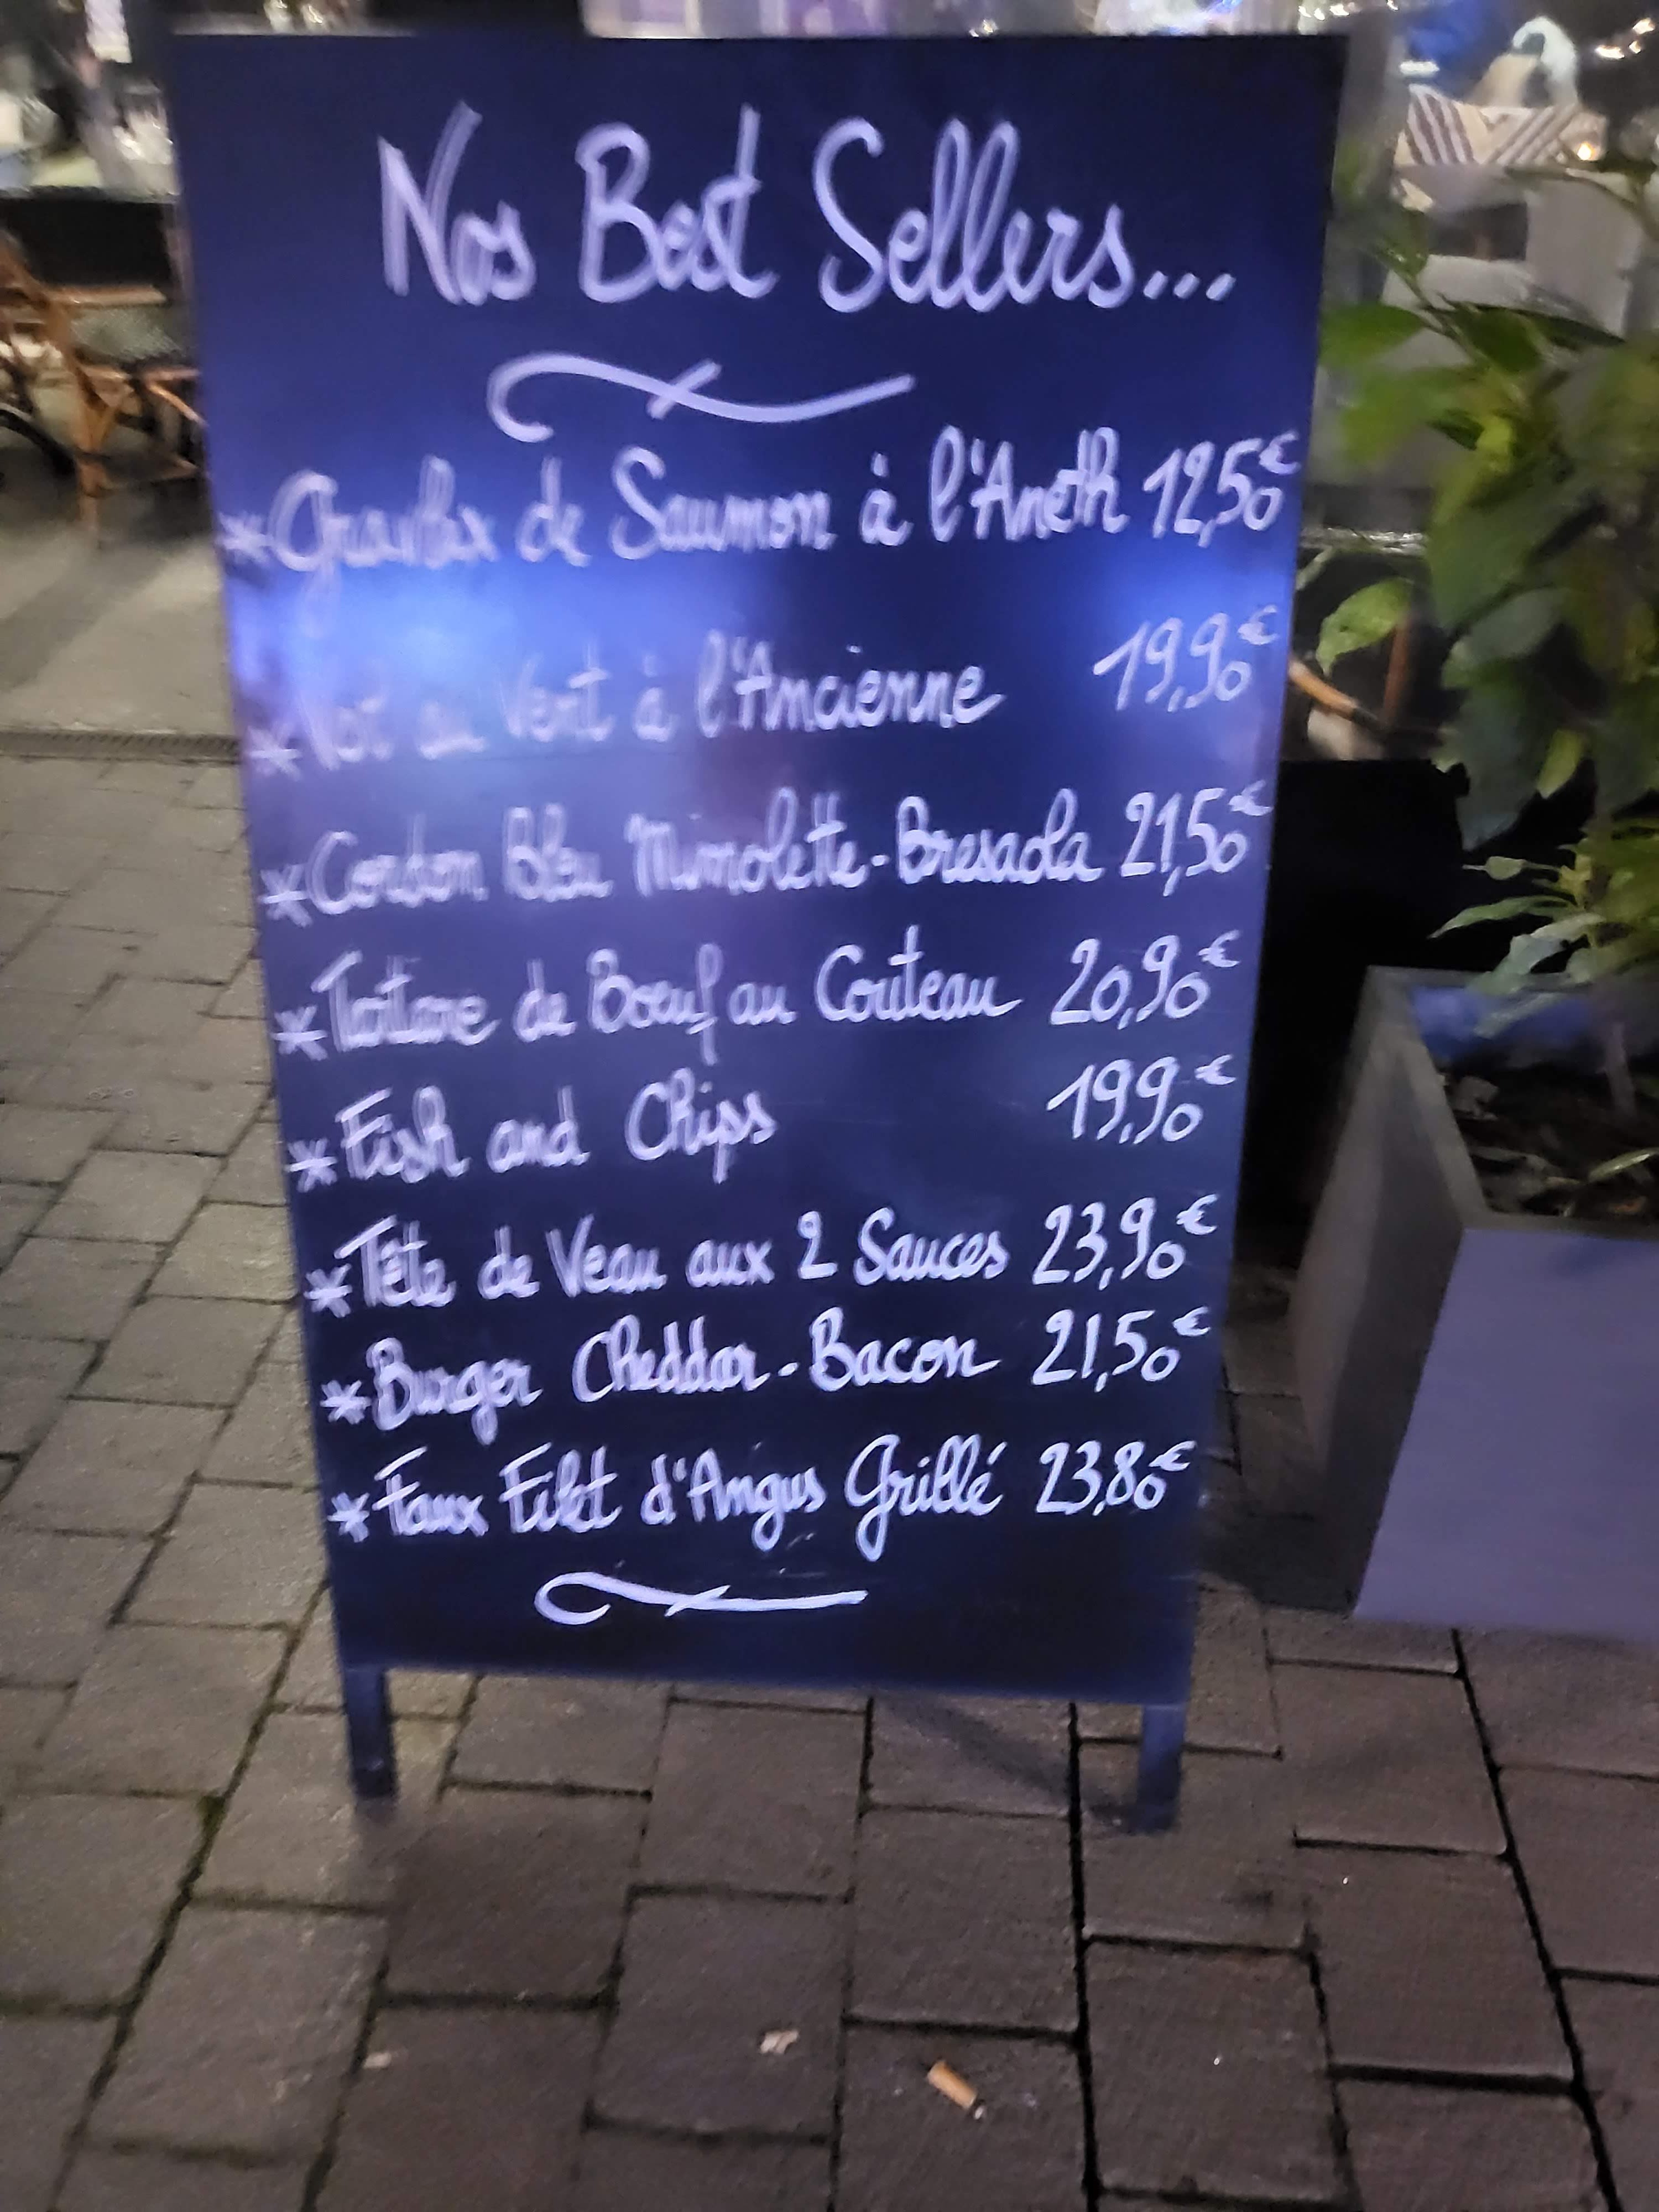 Nos Best Sellers...
*Gravlax de Saumon à l'Aneth 12,50€
*Vol au Vent à l'Ancienne 19,90€
*Cordon Bleu Mimolette-Bresaola 21,50€
*Tartare de Boeuf au Couteau 20,90€
*Fish and Chips 19,90€
*Tête de Veau aux 2 Sauces 23,90€
*Burger Cheddar-Bacon 21,50€
*Faux Filet d'Angus Grillé 23,80€